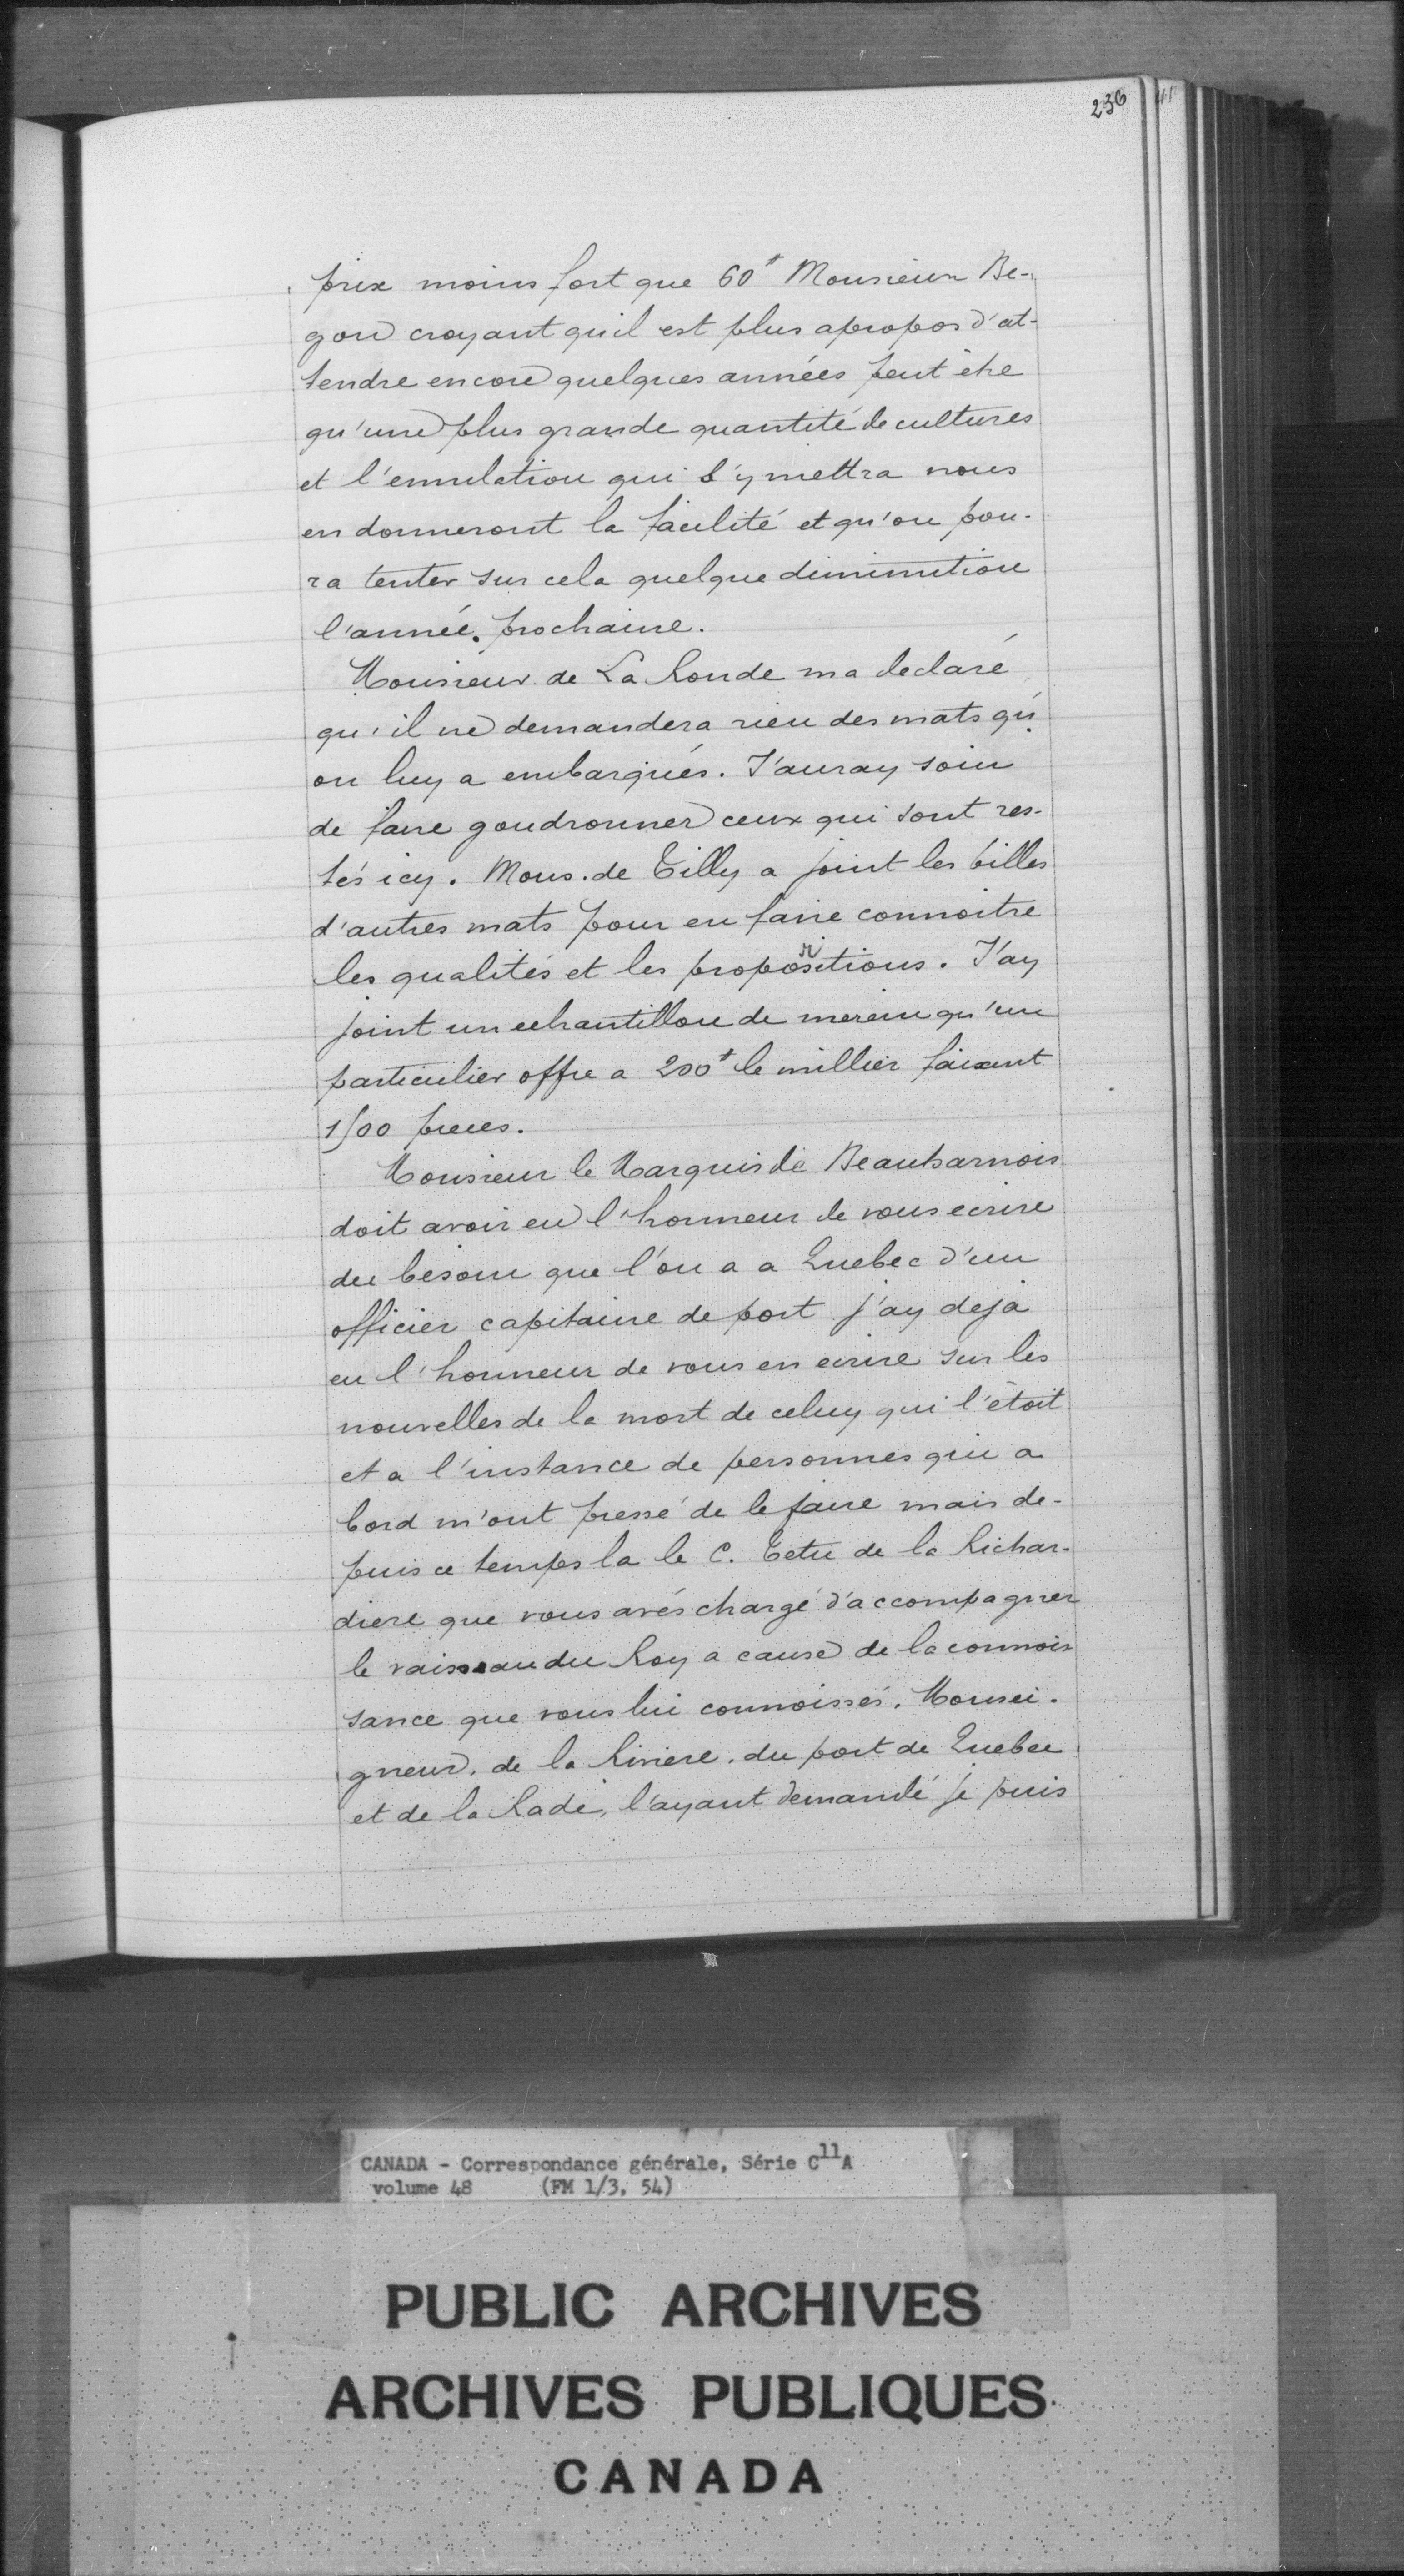 236
prix moins fort que 60# Monsieur Be-
gon croyant quil est plus apropos d'at-
tendre encore quelques années peut être
qu'une plus grande quantité de cultures
et l'emulation qui s'y mettra nous
en donneront la facilité et qu'on pou-
ra tenter sur cela quelque diminution
l'année prochaine.
Monsieur de La Ronde ma declaré
qu'il ne demandera rien des mats qu'
on luy a embarqués. J'auray soin
de faire goudronner ceux qui sont res-
tés icy. Mons. de Tilly a joint les billes
d'autres mats pour en faire connoitre
les qualités et les propositions. J'ay
joint un echantillon de merein qu'un
particulier offre a 200# le millier faisant
1500 pieces.
Monsieur le Marquis de Beauharnois
doit avoir eu l'honneur de vous ecrire
du besoin que l'on a a Quebec d'un
officier capitaine de port j'ay deja
eu l'honneur de vous en ecrire sur les
nouvelles de la mort de celuy qui l'étoit
et a l'instance de personnes qui a
bord m'ont pressé de le faire mais de-
puis ce temps la le C. Tetu de la Richar-
diere que vous avés chargé d'accompagner
le vaisseau du Roy a cause de la connois
sance que vous lui connoissés. Monsei-
gneur, de la Riviere, du port de Quebec
et de la Rade, l'ayant demandé je puis
CANADA - Correspondance générale, Série C11A
volume 48 (FM 1/3, 54)
PUBLIC ARCHIVES
ARCHIVES PUBLIQUES
CANADA